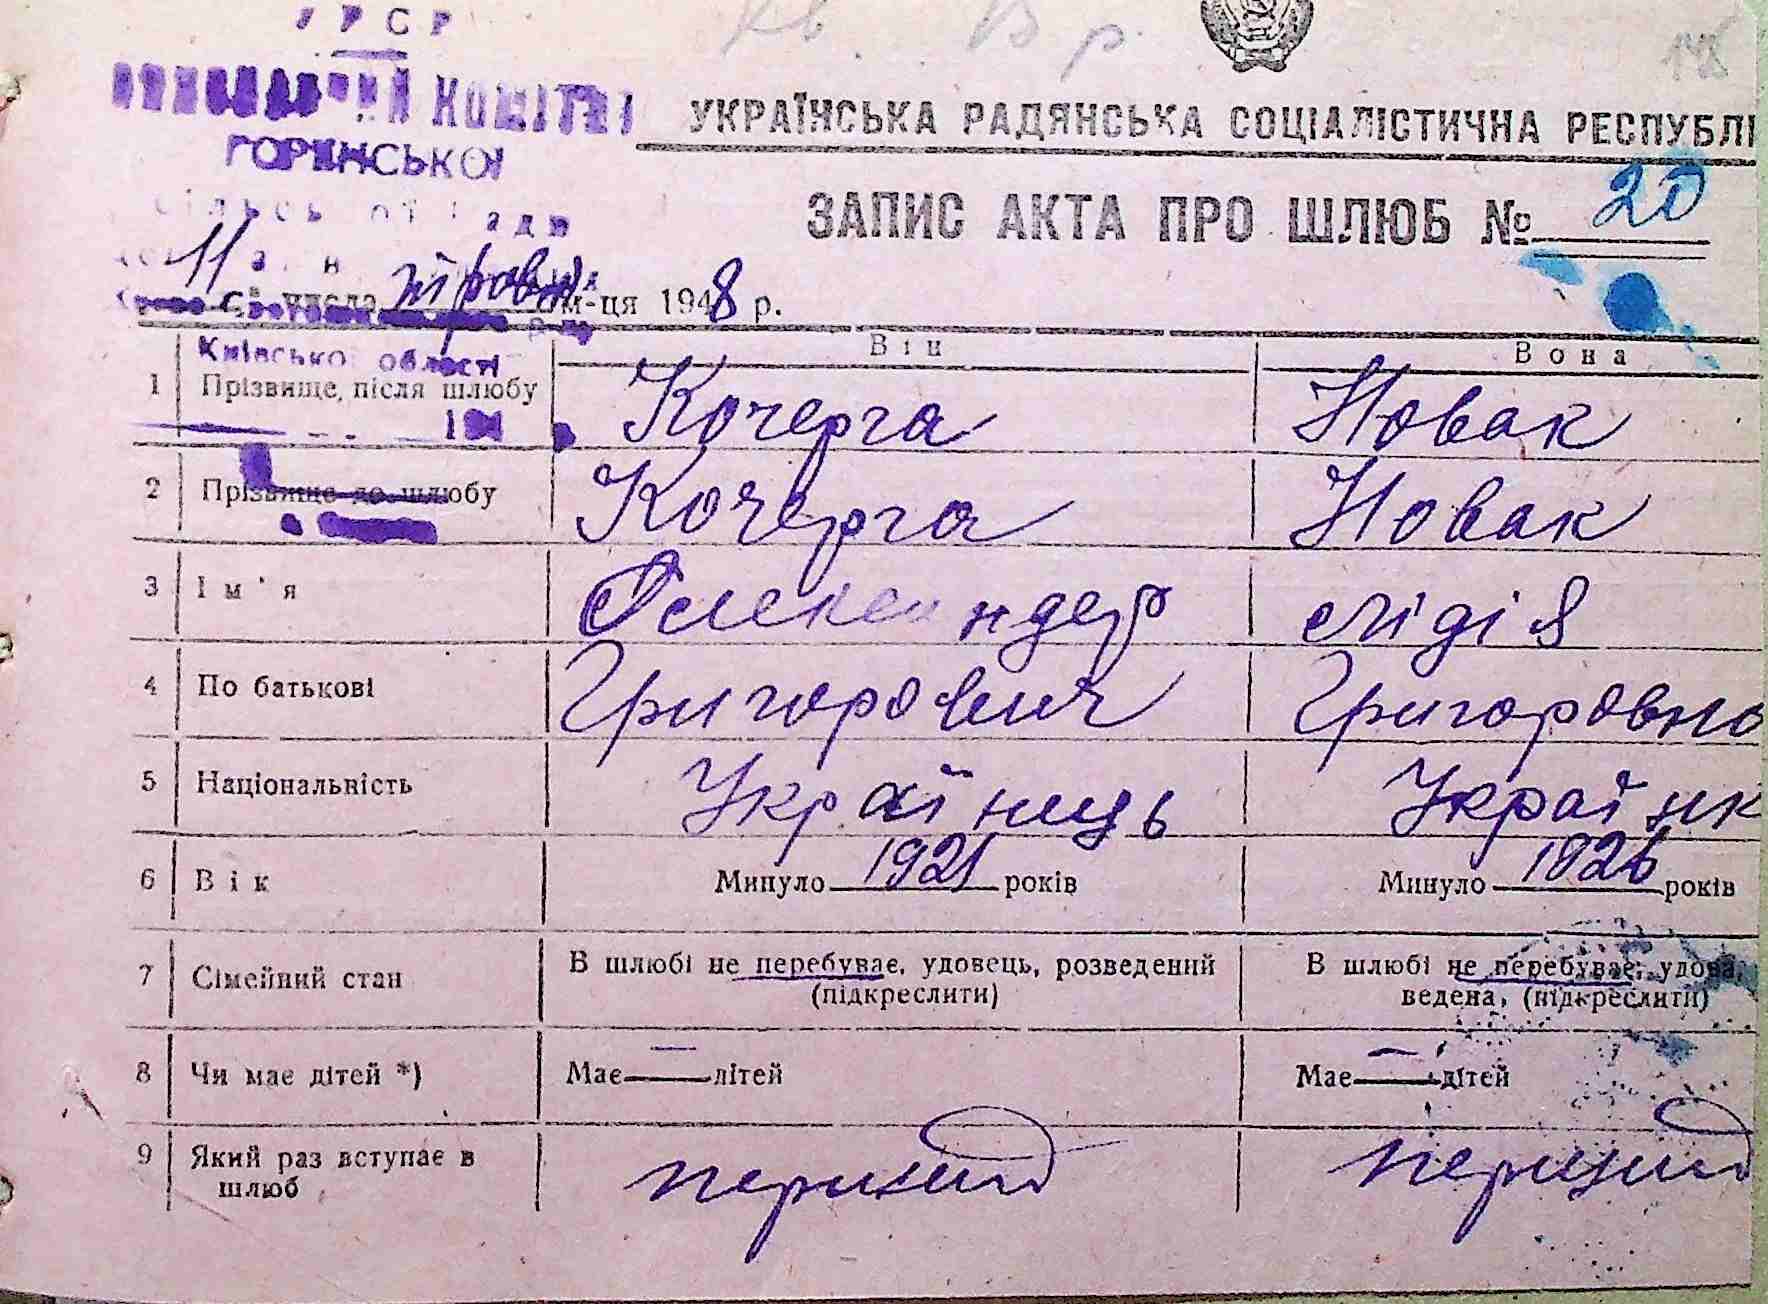 УРСР
ВИКОНАВЧИЙ КОМІТЕТ
ГОРЕНСЬКОЇ
Кв. Вр. 148
УКРАЇНСЬКА РАДЯНСЬКА СОЦІАЛІСТИЧНА РЕСПУБЛІ
ЗАПИС АКТА ПРО ШЛЮБ № 20
11 числа травня м-ця 1948 р.
Київської області
Він Вона
1 Прізвище, після шлюбу Кочерга Новак
194
2 Прізвище до шлюбу Кочерга Новак
3 Ім'я Олександер Лідія
4 По батькові Григорович Григоровно
5 Національність Українець Українк
6 Вік Минуло 1921 років Минуло 1926 років
7 Сімейний стан В шлюбі не перебуває, удовець, розведений В шлюбі не перебуває, удова,
(підкреслити) ведена, (підкреслити)
8 Чи має дітей *) Має — дітей Має — дітей
9 Який раз вступає в перший перший
шлюб